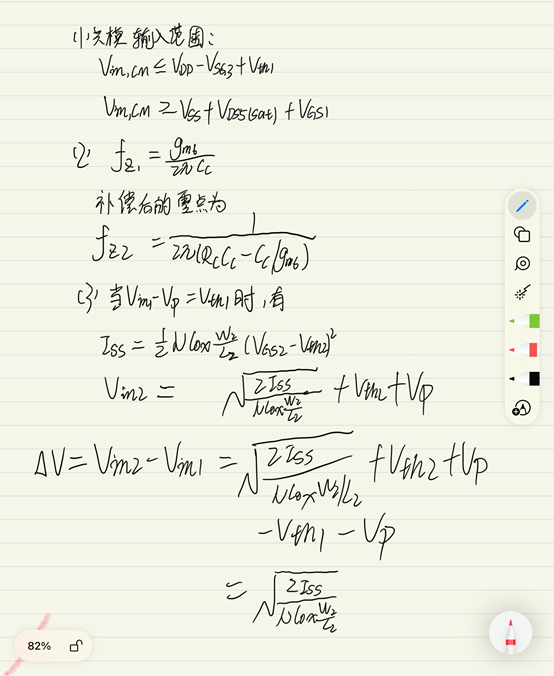 (1) 共模输入范围:
Vin,CM ≤ VDD - VSG3 + Vth1
Vin,CM ≥ VSS + VDS5(sat) + VGS1
(2) fz1 = gm6 / 2πCc
补偿后的零点为
fz2 = 1 / 2π(RcCc - Cc/gm6)
(3) 当Vin1 - Vp = Vth1时,有
ISS = 1/2 μCox W2/L2 (VGS2 - Vth2)²
Vin2 = √(2ISS / μCox W2/L2) + Vth2 + Vp
ΔV = Vin2 - Vin1 = √(2ISS / μCox W2/L2) + Vth2 + Vp
- Vth1 - Vp
= √(2ISS / μCox W2/L2)
82%